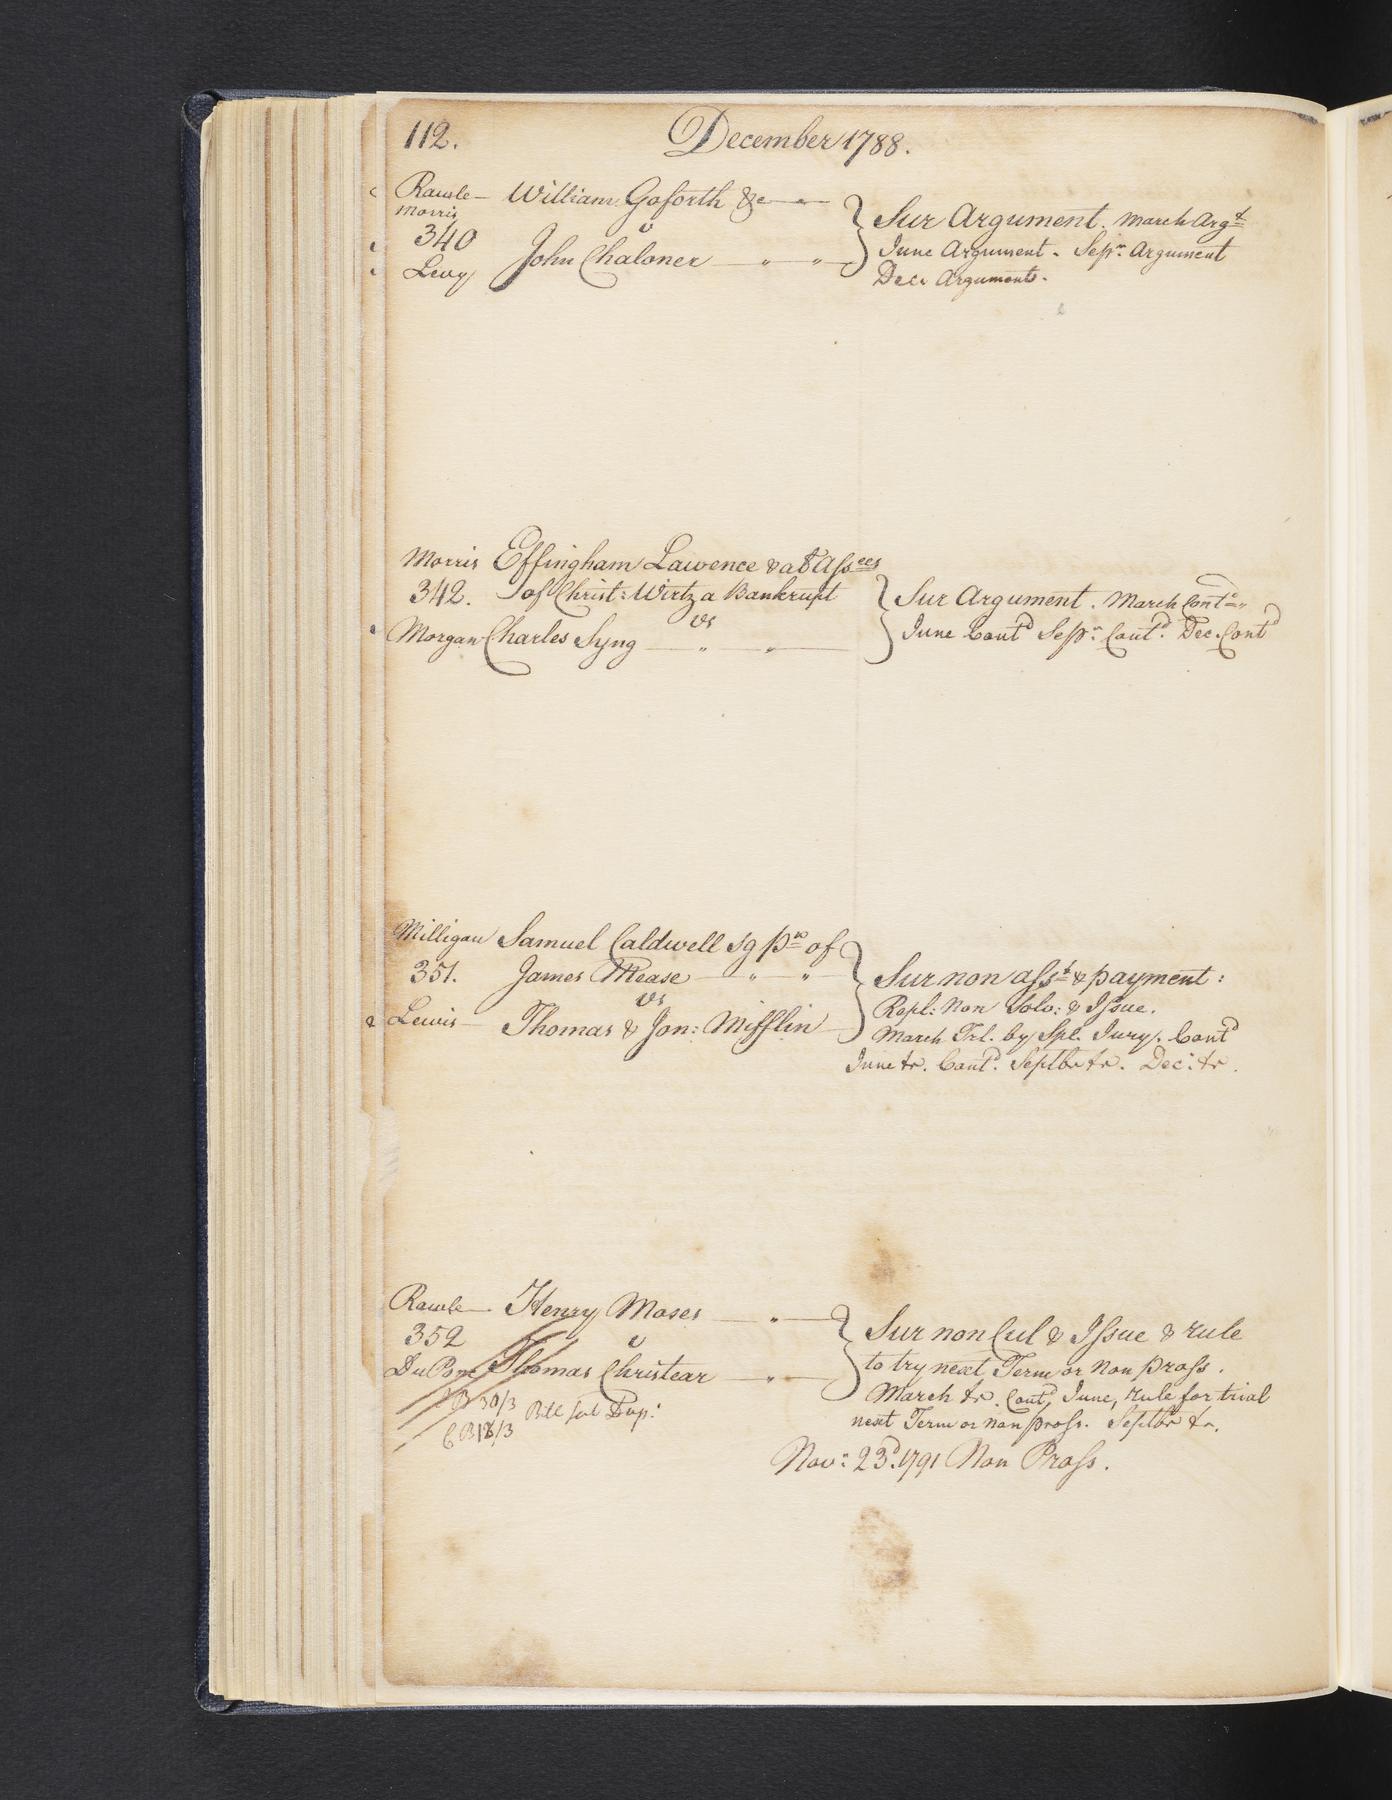 112. December 1788.
Rawle — William Goforth &c
Morris
340 v
Levy John Chaloner — " — "
Sur Argument. March Argt
June Argument. Sepr. Argument
Decr Argument.
Morris Effingham Lawence & al Assees
342. of Christ: Wirtz a Bankrupt
vs
Morgan Charles Syng — " — "
Sur Argument. March Contd
June Contd Sepr. Contd. Dec. Contd
Milligan Samuel Caldwell sg po of
351. James Mease — " — "
vs
Lewis — Thomas & Jon: Mifflin
Sur non asst & payment:
Repl: Non Solv: & Issue.
March Trl. by Spl. Jury. Contd
June tr. Contd. Septbr tr. Dec: tr.
Rawle — Henry Moses — "
352 v
DuPonc Thomas Christear — "
30/3
CB 18/3 Bill
Sur non Cul & Issue & rule
to try next Term or Non pross.
March tr. Contd, June, rule for trial
next Term or non pross. Septbr tr.
Novr: 23d. 1791 Non Pross.